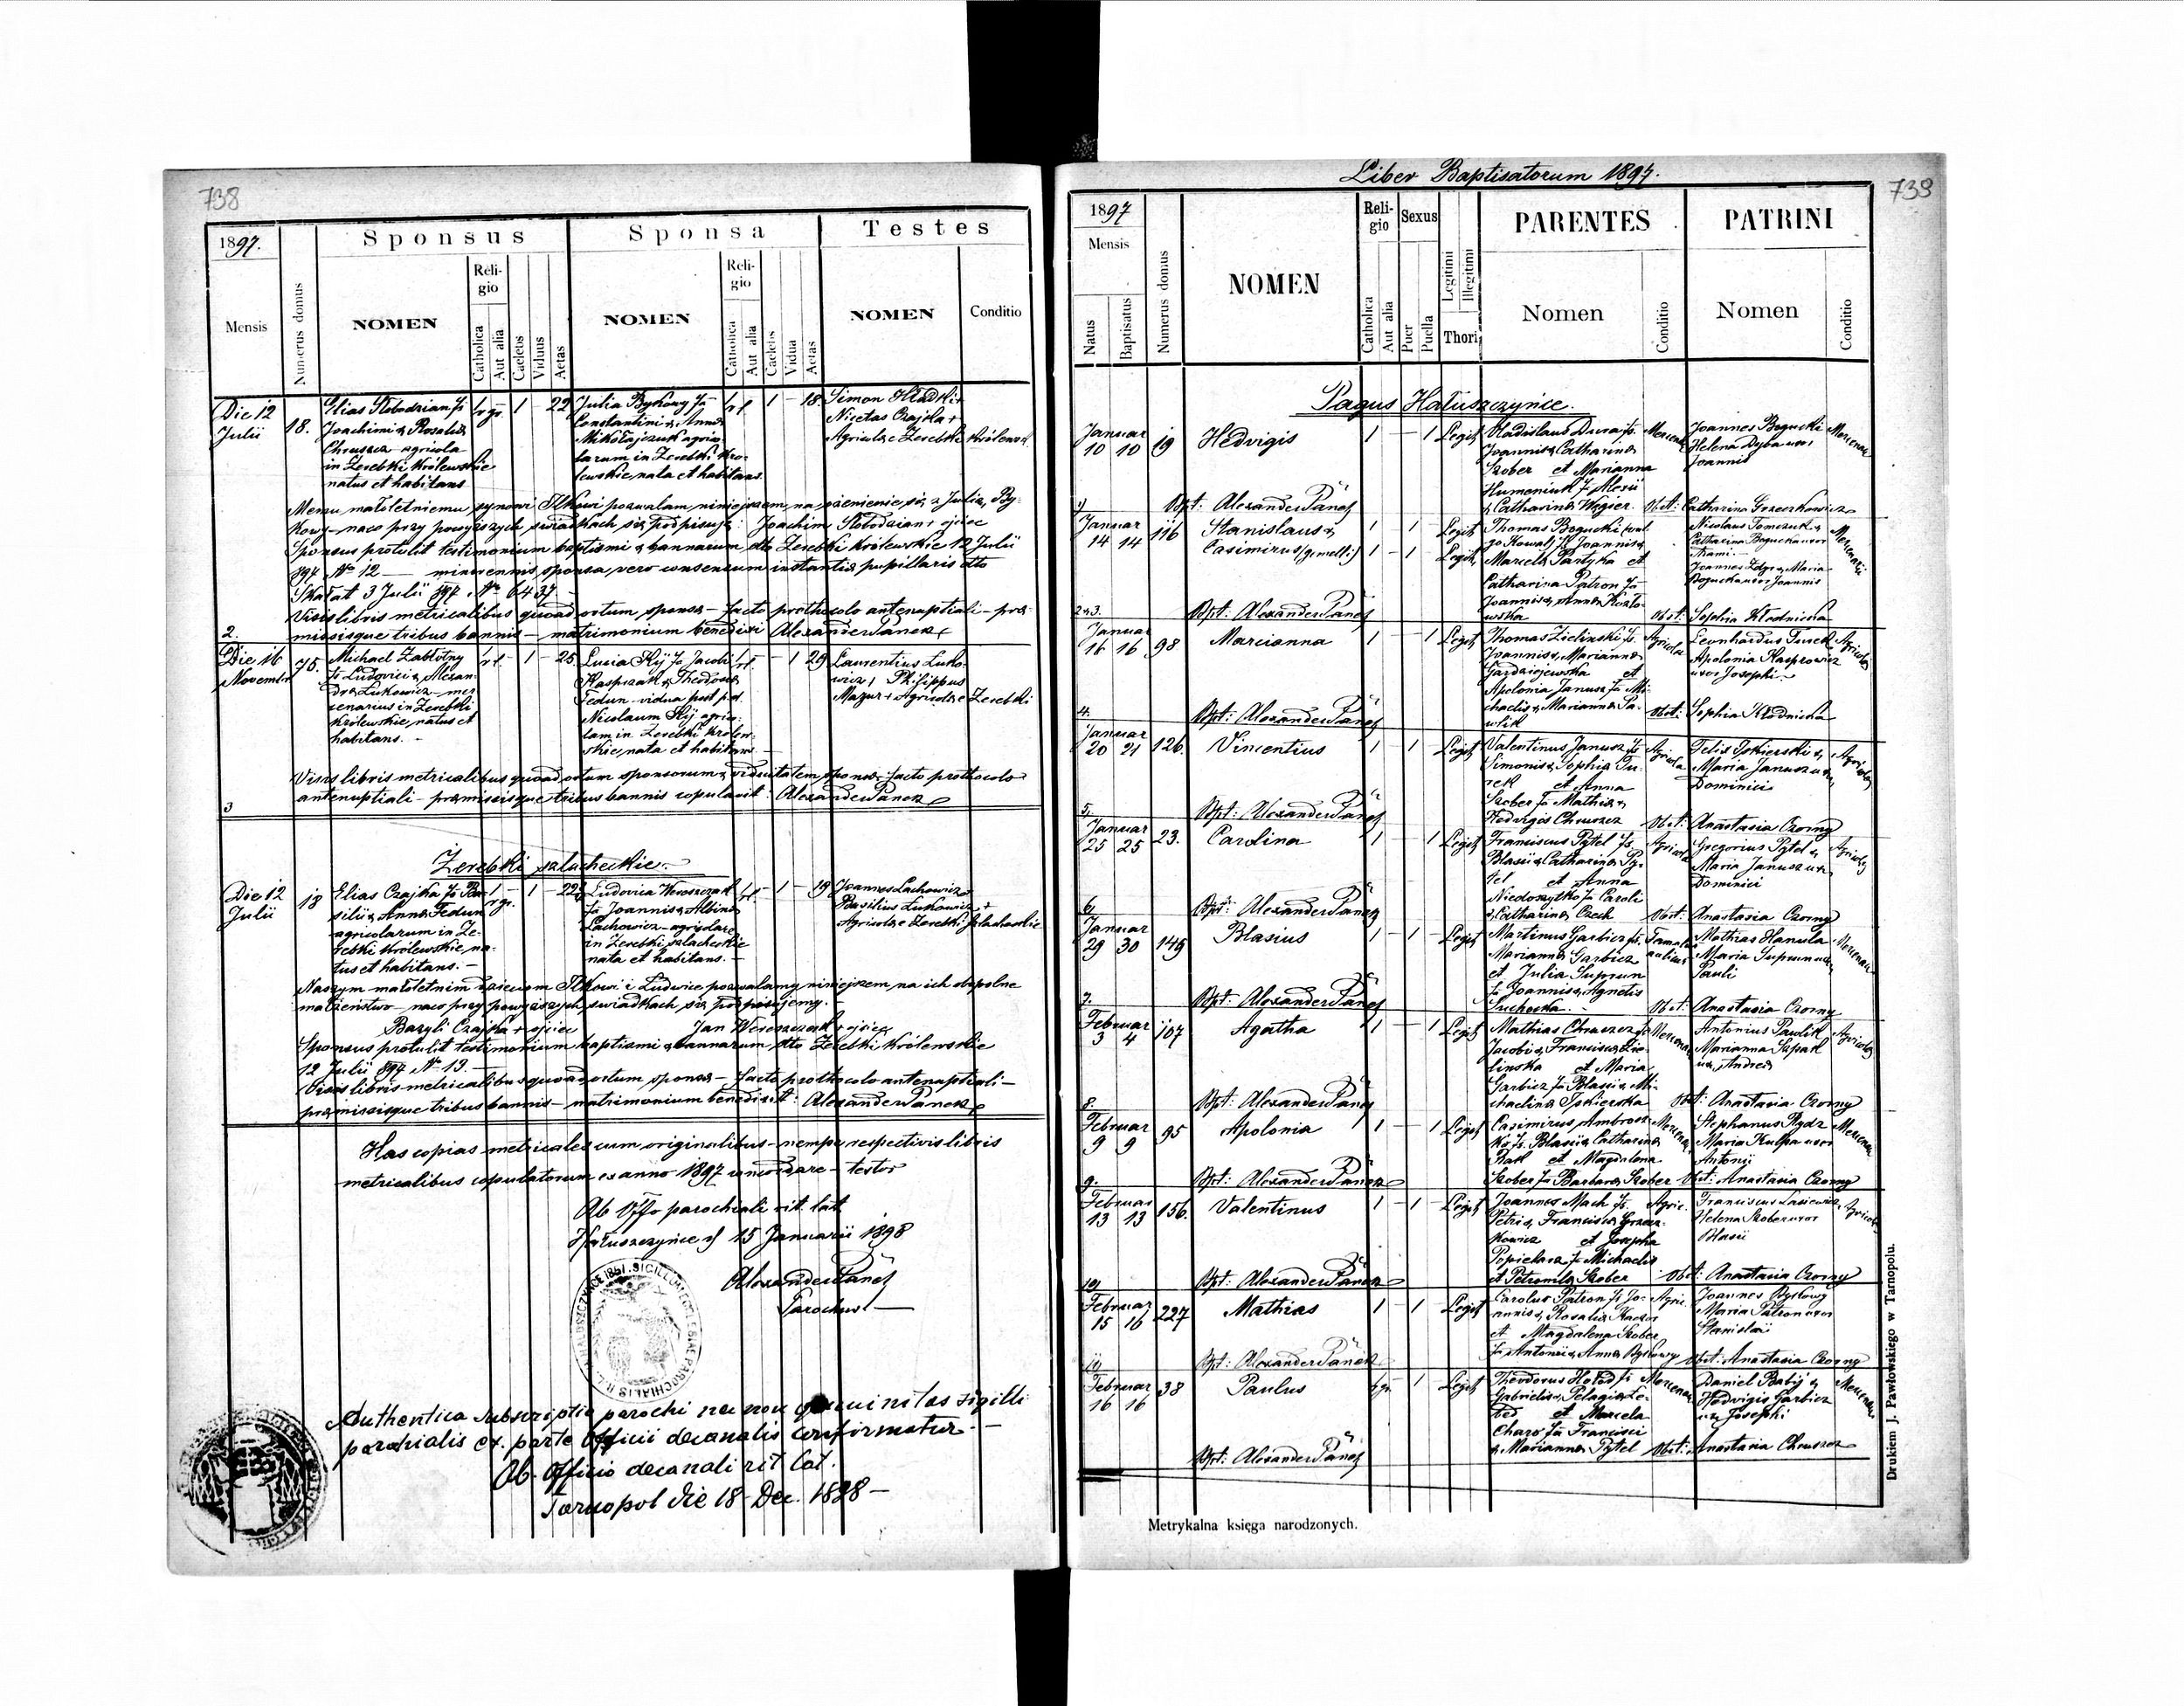 738
1897.
Mensis
Numerus domus
Sponsus
NOMEN
Religio
Catholica
Aut alia
Caelebs
Viduus
Aetas
Sponsa
NOMEN
Religio
Catholica
Aut alia
Caelebs
Vidua
Aetas
Testes
NOMEN
Conditio
Die 12
Julii
18.
Elias Slobodzian fs
Joachimi & Rosalia
Chruszcz agricola
in Zerebki Królewskie
natus et habitans
r. gr. 1 - 22
Julia Bykowy fa
Constantini & Anna
Mikołajczuk agrico-
larum in Zerebki Kró-
lewskie, nata et habitans.
r. l. 1 - 18
Simon Hladki +
Nicetas Czajka +
Agricolae Zerebki Królewsk.
Memu małoletniemu synowi Ilkowi pozwalam niniejszem na ożenienie się z Julią By-
kowy - na co przy powyższych świadkach się podpisuję: Joachim Slobodzian + ojciec
Sponsus protulit testimonium baptismi & bannorum dto Zerebki Królewskie 12 Julii
897 No 12 — minorennis, sponsa vero consensum instantia pupillaris dto
Skałat 3 Julii 897 No 6437
Visis libris metricalibus quoad ortum sponsa - facto prothocolo antenuptiali - prae-
missisque tribus bannis - matrimonium benedixi Alexander Panek
2.
Die 16
Novembr
75.
Michael Zabłotny
fs Ludovici & Alexan-
dra Lukowicz - mer-
cenarius in Zerebki
Królewskie, natus et
habitans. -
r. l. - 1 - 25
Lucia Kij fa Jacobi
Kasprzak & Theodosia
Fedun - vidua post p. d.
Nicolaum Kij agrico-
lam in Zerebki Królew-
skie, nata et habitans. -
r. l. - 1 29
Laurentius Luko-
wicz + Philippus
Mazur + Agricolae Zerebki
Visis libris metricalibus quoad ortum sponsorum & viduitatem sponsa, facto prothocolo
antenuptiali - praemissisque tribus bannis copulavit: Alexander Panek
3
Zerebki szlacheckie. -
Die 12
Julii
18
Elias Czajka fs Ba-
silii & Anna Fedun
agricolarum in Ze-
rebki Królewskie, na-
tus et habitans. -
r. gr. - 1 - 22
Ludovica Woroszczak
fa Joannis & Albina
Lachowicz - agricolarum
in Zerebki szlacheckie
nata et habitans. -
r. l. - 1 - 19
Joannes Lachowicz +
Basilius Lukowicz +
Agricolae Zerebki szlacheckie
Naszym małoletnim dzieciom Ilkowi i Ludwice pozwalamy niniejszem na ich wspólne
małżeństwo - na co przy powyższych świadkach się podpisujemy. -
Bazyli Czajka + ojciec Jan Woroszczak + ojciec
Sponsus protulit testimonium baptismi & bannorum dto Zerebki Królewskie
12 Julii 897 No 13. -
Visis libris metricalibus quoad ortum sponsa - facto prothocolo antenuptiali -
praemissisque tribus bannis - matrimonium benedixit: Alexander Panek
Has copias metricales cum originalibus - nempe respectivis libris
metricalibus copulatorum ex anno 1897 concordare - testor
Ab Offo parochiali rit. lat.
Hałuszczyńce d/ 15 Januarii 1898
Alexander Panek
Parochus
Authentica subscriptio parochi nec non genuinitas sigilli
parochialis ex parte Officii decanalis confirmatur -
Ab Officio decanali rit lat.
Tarnopol die 18 Dec. 1898 -
739
Liber Baptisatorum 1897.
1897
Mensis
Natus
Baptisatus
Numerus domus
NOMEN
Religio
Catholica
Aut alia
Sexus
Puer
Puella
Legitimi
Illegitimi
Thori
PARENTES
Nomen
Conditio
PATRINI
Nomen
Conditio
Pagus Hałuszczyńce.
Januar
10 10 19 Hedvigis 1 - 1 Legit
Vladislaus Dura fs.
Joannis & Catharina
Szober et Marianna
Humeniuk fa Alexii
& Catharina Węgier.
Joannes Bogucki
Helena Dyba uxor
Joannis
Obst: Catharina Grzeszkowicz
1) Bpt: Alexander Panek
Januar
14 14 116 Stanislaus &
Casimirus (gemelli)
Legit
Legit
Thomas Bogucki
Kowal fs Joannis &
Marcela Partyka et
Catharina Patron fa
Joannis & Anna Kozło-
wska
Nicolaus Tomczuk &
Catharina Bogucka uxor
Thomi. -
Joannes Zdyr & Maria
Bogucka uxor Joannis
Obst: Sophia Kłodnicka
2 & 3. Bpt: Alexander Panek
Januar
16 16 98 Marianna 1 - 1 Legit
Thomas Zielinski fs.
Joannis & Marianna
Gardziejewska et
Apolonia Janusz fa Mi-
chaelis & Marianna Pa-
wlik
Agricola
Leonhardus Turek
Apolonia Kasprowicz
uxor Josephi -
Obst: Sophia Kłodnicka
4. Bpt: Alexander Panek
Januar
20 21 126. Vincentius 1 - 1 - Legit
Valentinus Janusz fs
Simonis & Sophia Tu-
rek et Anna
Szober fa Mathia &
Hedvigis Chruszcz
Agricola
Felix Tokierski &
Maria Janusz uxor
Dominici
Obst: Anastasia Czorny
5. Bpt: Alexander Panek
Januar
25 25 23. Carolina 1 - 1 Legit
Franciscus Pytel fs
Blasii & Catharina Py-
tel et Anna
Niedoszytko fa Caroli
& Catharina Czech
Agricola
Gregorius Pytel &
Maria Janusz uxor
Dominici
Obst: Anastasia Czorny
6. Bpt: Alexander Panek
Januar
29 30 149 Blasius 1 - 1 - Legit
Martinus Garbicz fs.
Marianna Garbicz
et Julia Suprun
fa Joannis & Agnetis
Suchecka. -
Mathias Hanula
Maria Suprun uxor
Pauli
Obst: Anastasia Czorny
7. Bpt: Alexander Panek
Februar
3 4 107 Agatha 1 - 1 Legit
Mathias Chruszcz fs
Jacobi & Francisca Zie-
linska et Maria
Garbicz fa Blasii & Mi-
chaelina Tokierska
Antonius Pawlik
Marianna Szpak
ux. Andrea
Obst: Anastasia Czorny
8. Bpt: Alexander Panek
Februar
9 9 95 Apolonia 1 - 1 Legit
Casimirus Ambrosz-
ko fs. Blasii & Catharina
Rak et Magdalena
Szober fa Barbara Szober
Stephanus Rydz
Maria Kulpa uxor
Antonii
Obst: Anastasia Czorny
9. Bpt: Alexander Panek
Februar
13 13 156. Valentinus 1 - 1 - Legit
Joannes Mach fs.
Petri & Francisca Grzesz-
kowicz et Josepha
Popielacz fa Michaelis
et Petronela Szober
Agric.
Helena Szober uxor
Blasii
Obst: Anastasia Czorny
10) Bpt: Alexander Panek
Februar
15 16 227 Mathias 1 - 1 - Legit
Carolus Patron fs Jo-
annis & Rosalia
et Magdalena Szober
fa Antonii & Anna Bykowy
Agric.
Joannes Bykowy
Maria Patron uxor
Stanislai
Obst: Anastasia Czorny
11) Bpt: Alexander Panek
Februar
16 16 38 Paulus r. gr. 1 Legit
Theodorus Hołod fs
Gabrielis & Pelagia
et Marcela
Charo fa Francisci
& Marianna Pytel
Daniel Babij &
Hedvigis Garbicz
ux. Josephi
Obst: Anastasia Chruszcz
Bpt: Alexander Panek
Metrykalna księga narodzonych.
Drukiem J. Pawłowskiego w Tarnopolu.